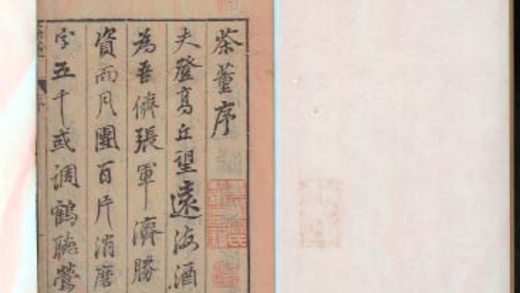 茶董序
夫登高丘望遠海酒
為吾儕張軍濟勝
資而月團百片消磨
字五千或調鶴聽鶯